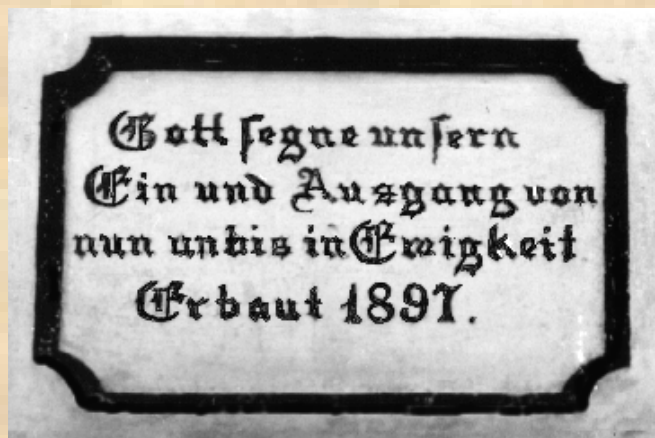 Gott segne unsern
Ein und Ausgang von
nun an bis in Ewigkeit
Erbaut 1897.